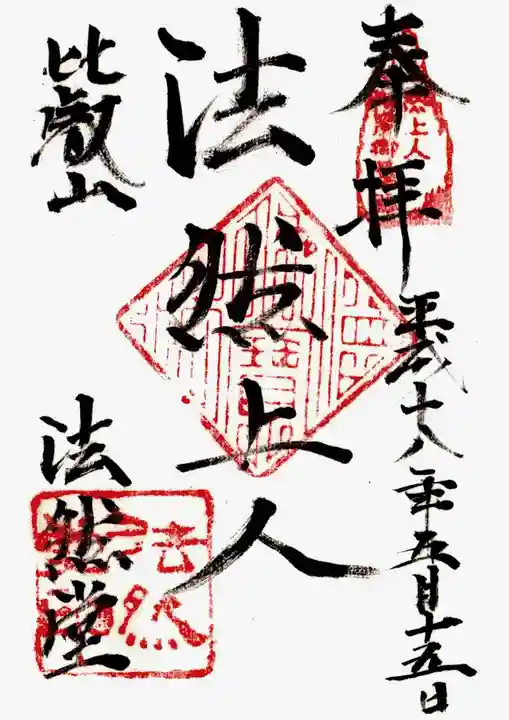 奉拝
平成十八年五月十五日
法然上人
比叡山
法然堂
上人
法然